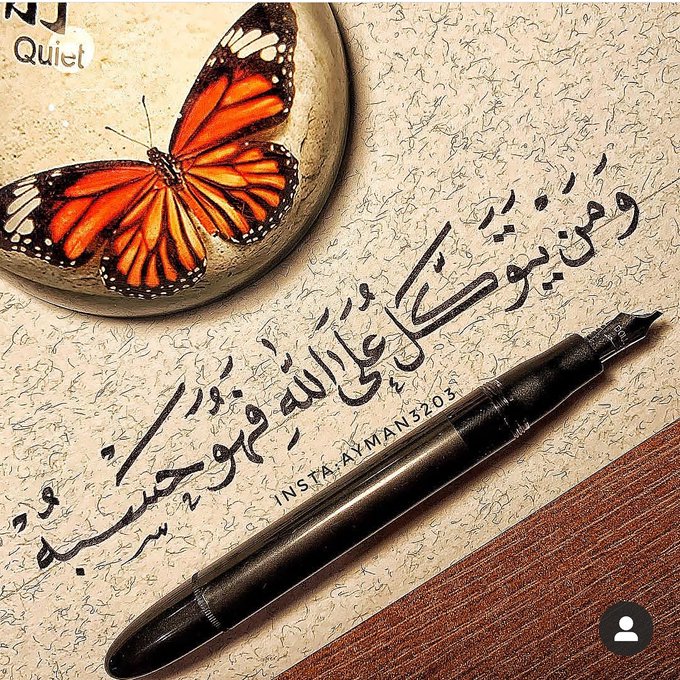 Quiet
وَمَنْ يَتَوَكَّلْ عَلَى اللَّهِ فَهُوَ حَسْبُهُ
INSTA:AYMAN3203